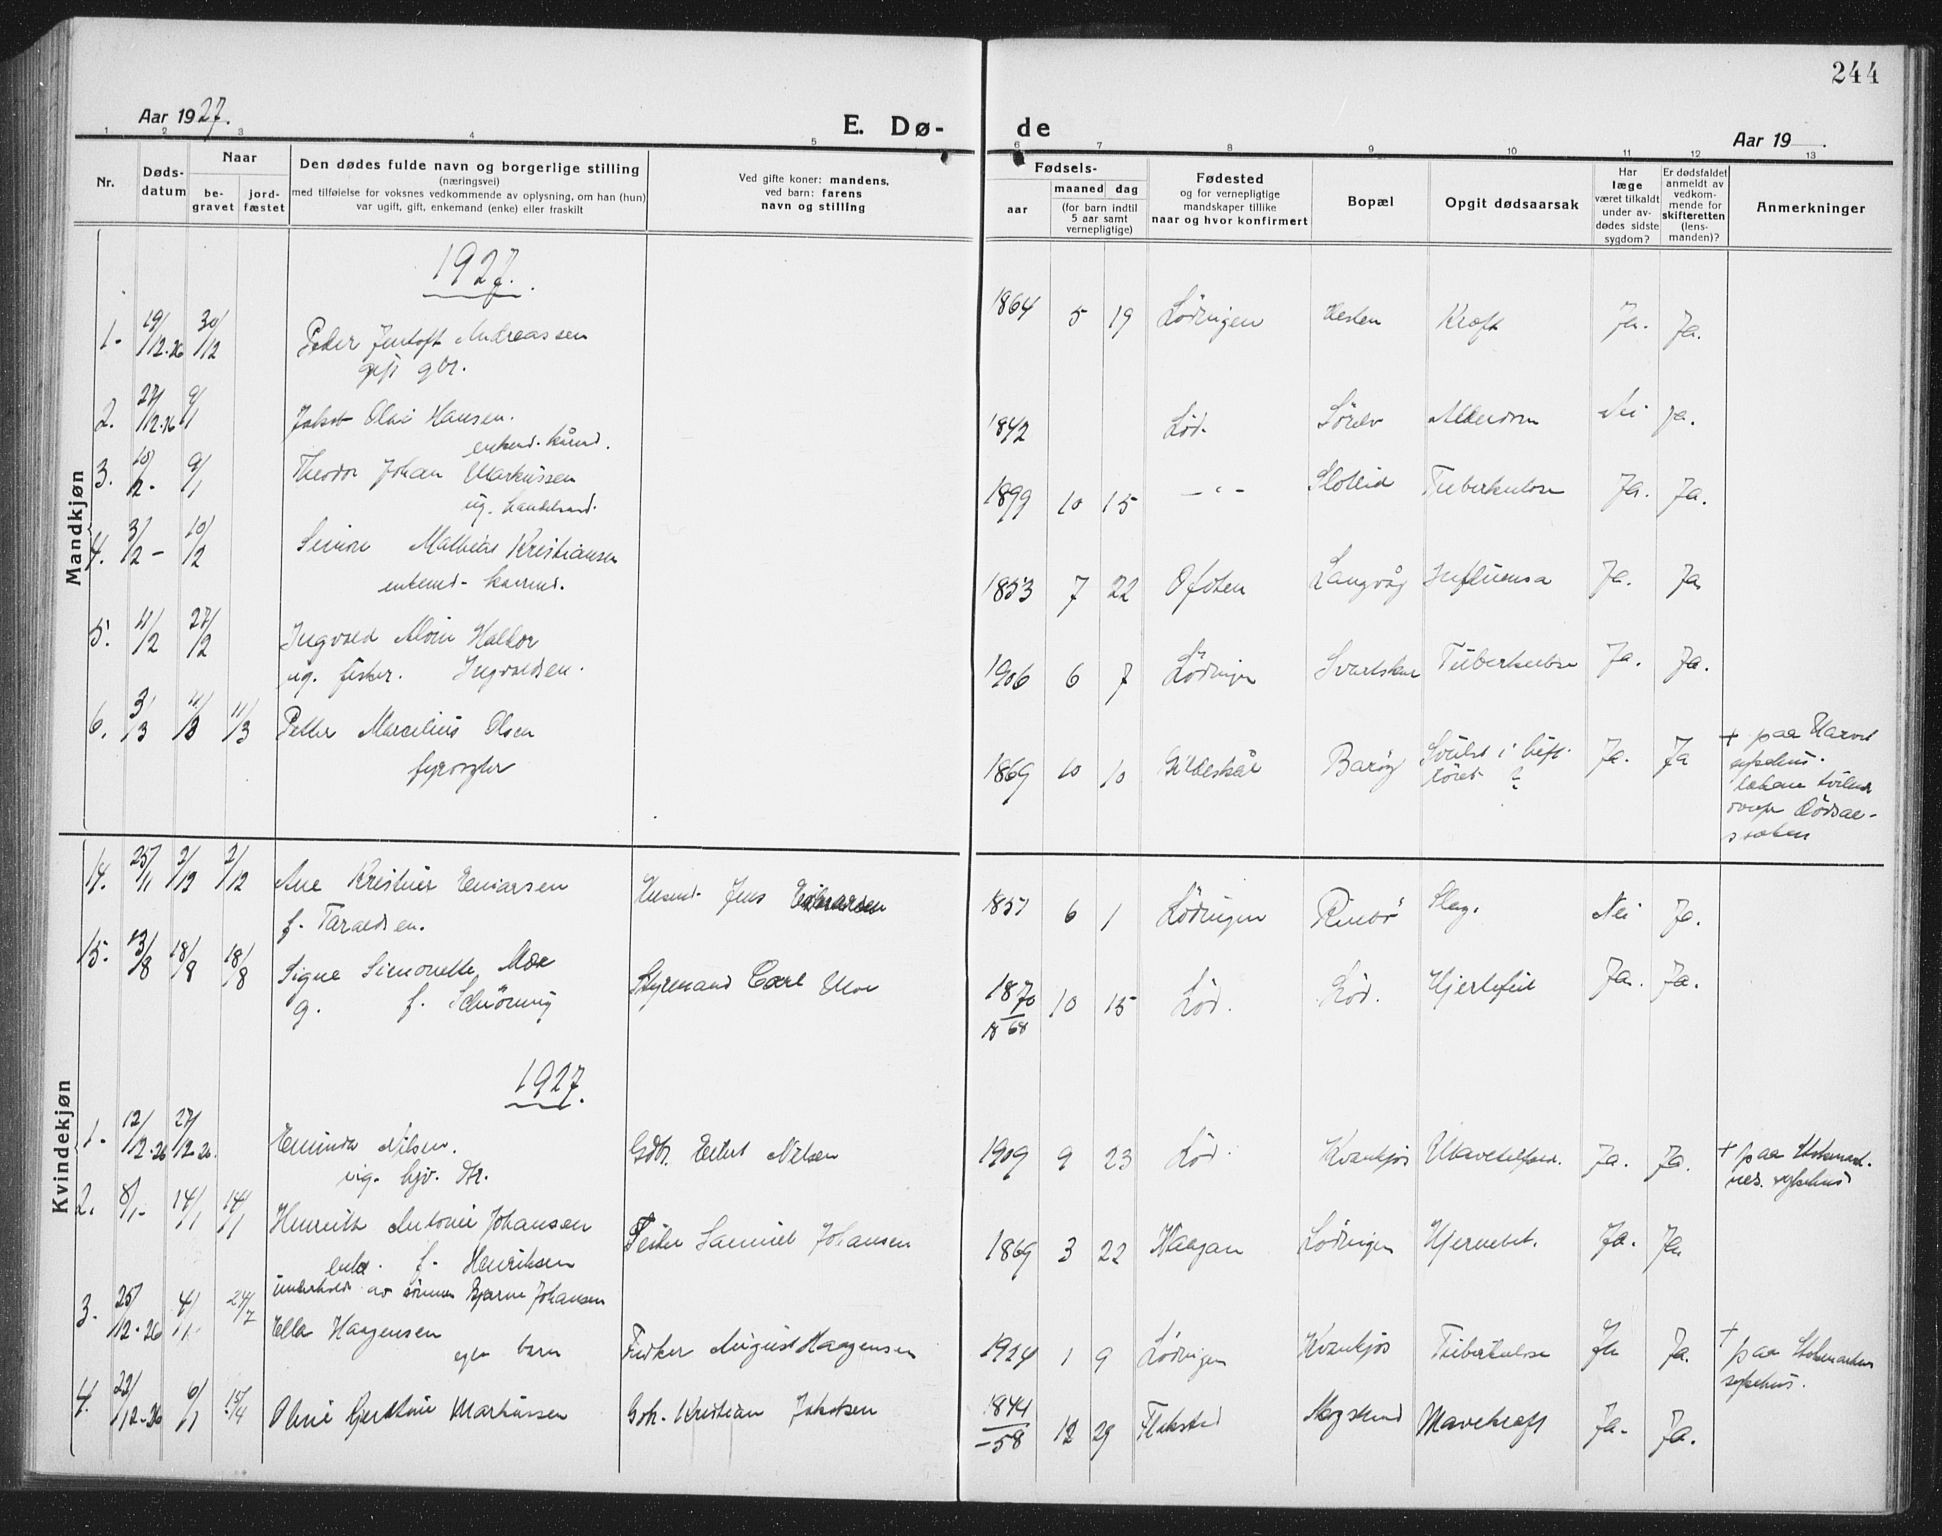 244
Aar 1927.
E. Dø-
de
Aar 19
1 2 3 4 5 6 7 8 9 10 11 12 13
Nr.
Døds-
datum
Naar
be-
gravet
jord-
fæstet
Den dødes fulde navn og borgerlige stilling
(næringsvei)
med tilføielse for voksnes vedkommende av oplysning, om han (hun)
var ugift, gift, enkemand (enke) eller fraskilt
Ved gifte koner: mandens,
ved barn: farens
navn og stilling
Fødsels-
aar
maaned dag
(for barn indtil
5 aar samt
vernepligtige)
Fødested
og for vernepligtige
mandskaper tillike
naar og hvor konfirmert
Bopæl
Opgit dødsaarsak
Har
læge
været tilkaldt
under av-
dødes sidste
sygdom?
Er dødsfaldet
anmeldt av
vedkom-
mende for
skifteretten
(lens-
manden)?
Anmerkninger
Mandkjøn
1927.
1. 19/12-26 30/12 Peder Jentoft Andreassen 1864 5 19 Lødingen Hesten Kræft Ja. Ja.
gift gbr.
2. 27/12-26 9/1 Jakob Olai Hansen. 1842 Lød. Alderdom Nei Ja.
enkem. kårmd.
3. 9/1 Theodor Johan Markussen 1899 10 15 -"- Tuberkulose Ja. Ja.
ug. handelsmd.
4. 3/2 - 10/2 Simon Mathias Kristiansen 1853 7 22 Ofoten Langvåg Influensa Ja. Ja
enkemd. kaarmd.
5. 11/2 27/2 Ingvald Alvin Haldor 1906 6 7 Lødingen Svartskar Tuberkulose Ja. Ja.
ug. fisker. Ingvaldsen.
6. 3/3 11/3 11/3 Petter Marcelius Olsen 1869 10 10 Gildeskål Barøy Svulst i luft- Ja. Ja + paa Harst
fyrvogter røret ? sykehus.
dødsaar-
saken
Kvindekjøn
14. 25/11 2/12 2/12 Ane Kristine Einarsen Husmd. Jens Einarsen 1857 6 1 Lødingen Rinbø Slag. Nei Ja.
f. Taraldsen.
15. 13/8 18/8 18/8 Signe Simonette Moe Styrmand Carl Moe 1870 10 15 Lød. Lød. Hjertefeil Ja. Ja.
g. f. Schiøning 1868
1927.
1. 12/12-26 27/12-26. Erminda Nilsen. Gdbr. Eilert Nilsen 1909 9 23 Lød. Kvankjos Ja. Ja. + paa Stokmark-
ug. hjv. dtr. nes sykehus
2. 8/1- 14/1 14/1 Henrikke Antonie Johansen Fisker Samuel Johansen 1869 3 22 Vaagan Lødingen Hjerneblt. Ja. Ja
enke. f. Henriksen
underholdt av sønnen Bjarne Johansen
3. 25/12-26 4/1 24/7 Ella Haagensen Fisker August Haagensen 1924 1 9 Lødingen Kvankjos Tuberkulose Ja Ja. + paa Stokmarknes
egte barn sykehus.
4. 22/12-26 6/1 15/4 Oline Gjertine Markussen Gbr. Kristian Jakobsen 1844 12 29 Flakstad Mavekræft Ja. Ja.
-58